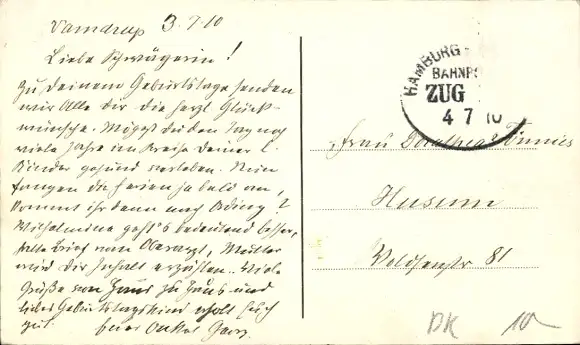 Vamdrup 3.7.10
Liebe Schwägerin!
Zu Deinem Geburtstage senden
wir Alle dir die herzl. Glück-
wünsche. Mögest du den Tag noch
viele Jahre im Kreise deiner l.
Kinder gesund verleben. Nun
fangen die Ferien ja bald an,
kommt ihr dann nach Ording?
Wilhelmine geht's bedeutend besser,
hatte Brief vom Oberarzt, Mutter
wird dir Inhalt erzählen. Viele
Grüße von Haus zu Haus und
liebes Geburtstagskind erholt Euch
gut. Onkel
HAMBURG-
BAHNP
ZUG
4 7 10
Frau Dorothea Tönnies
Husum
81
DK 10-